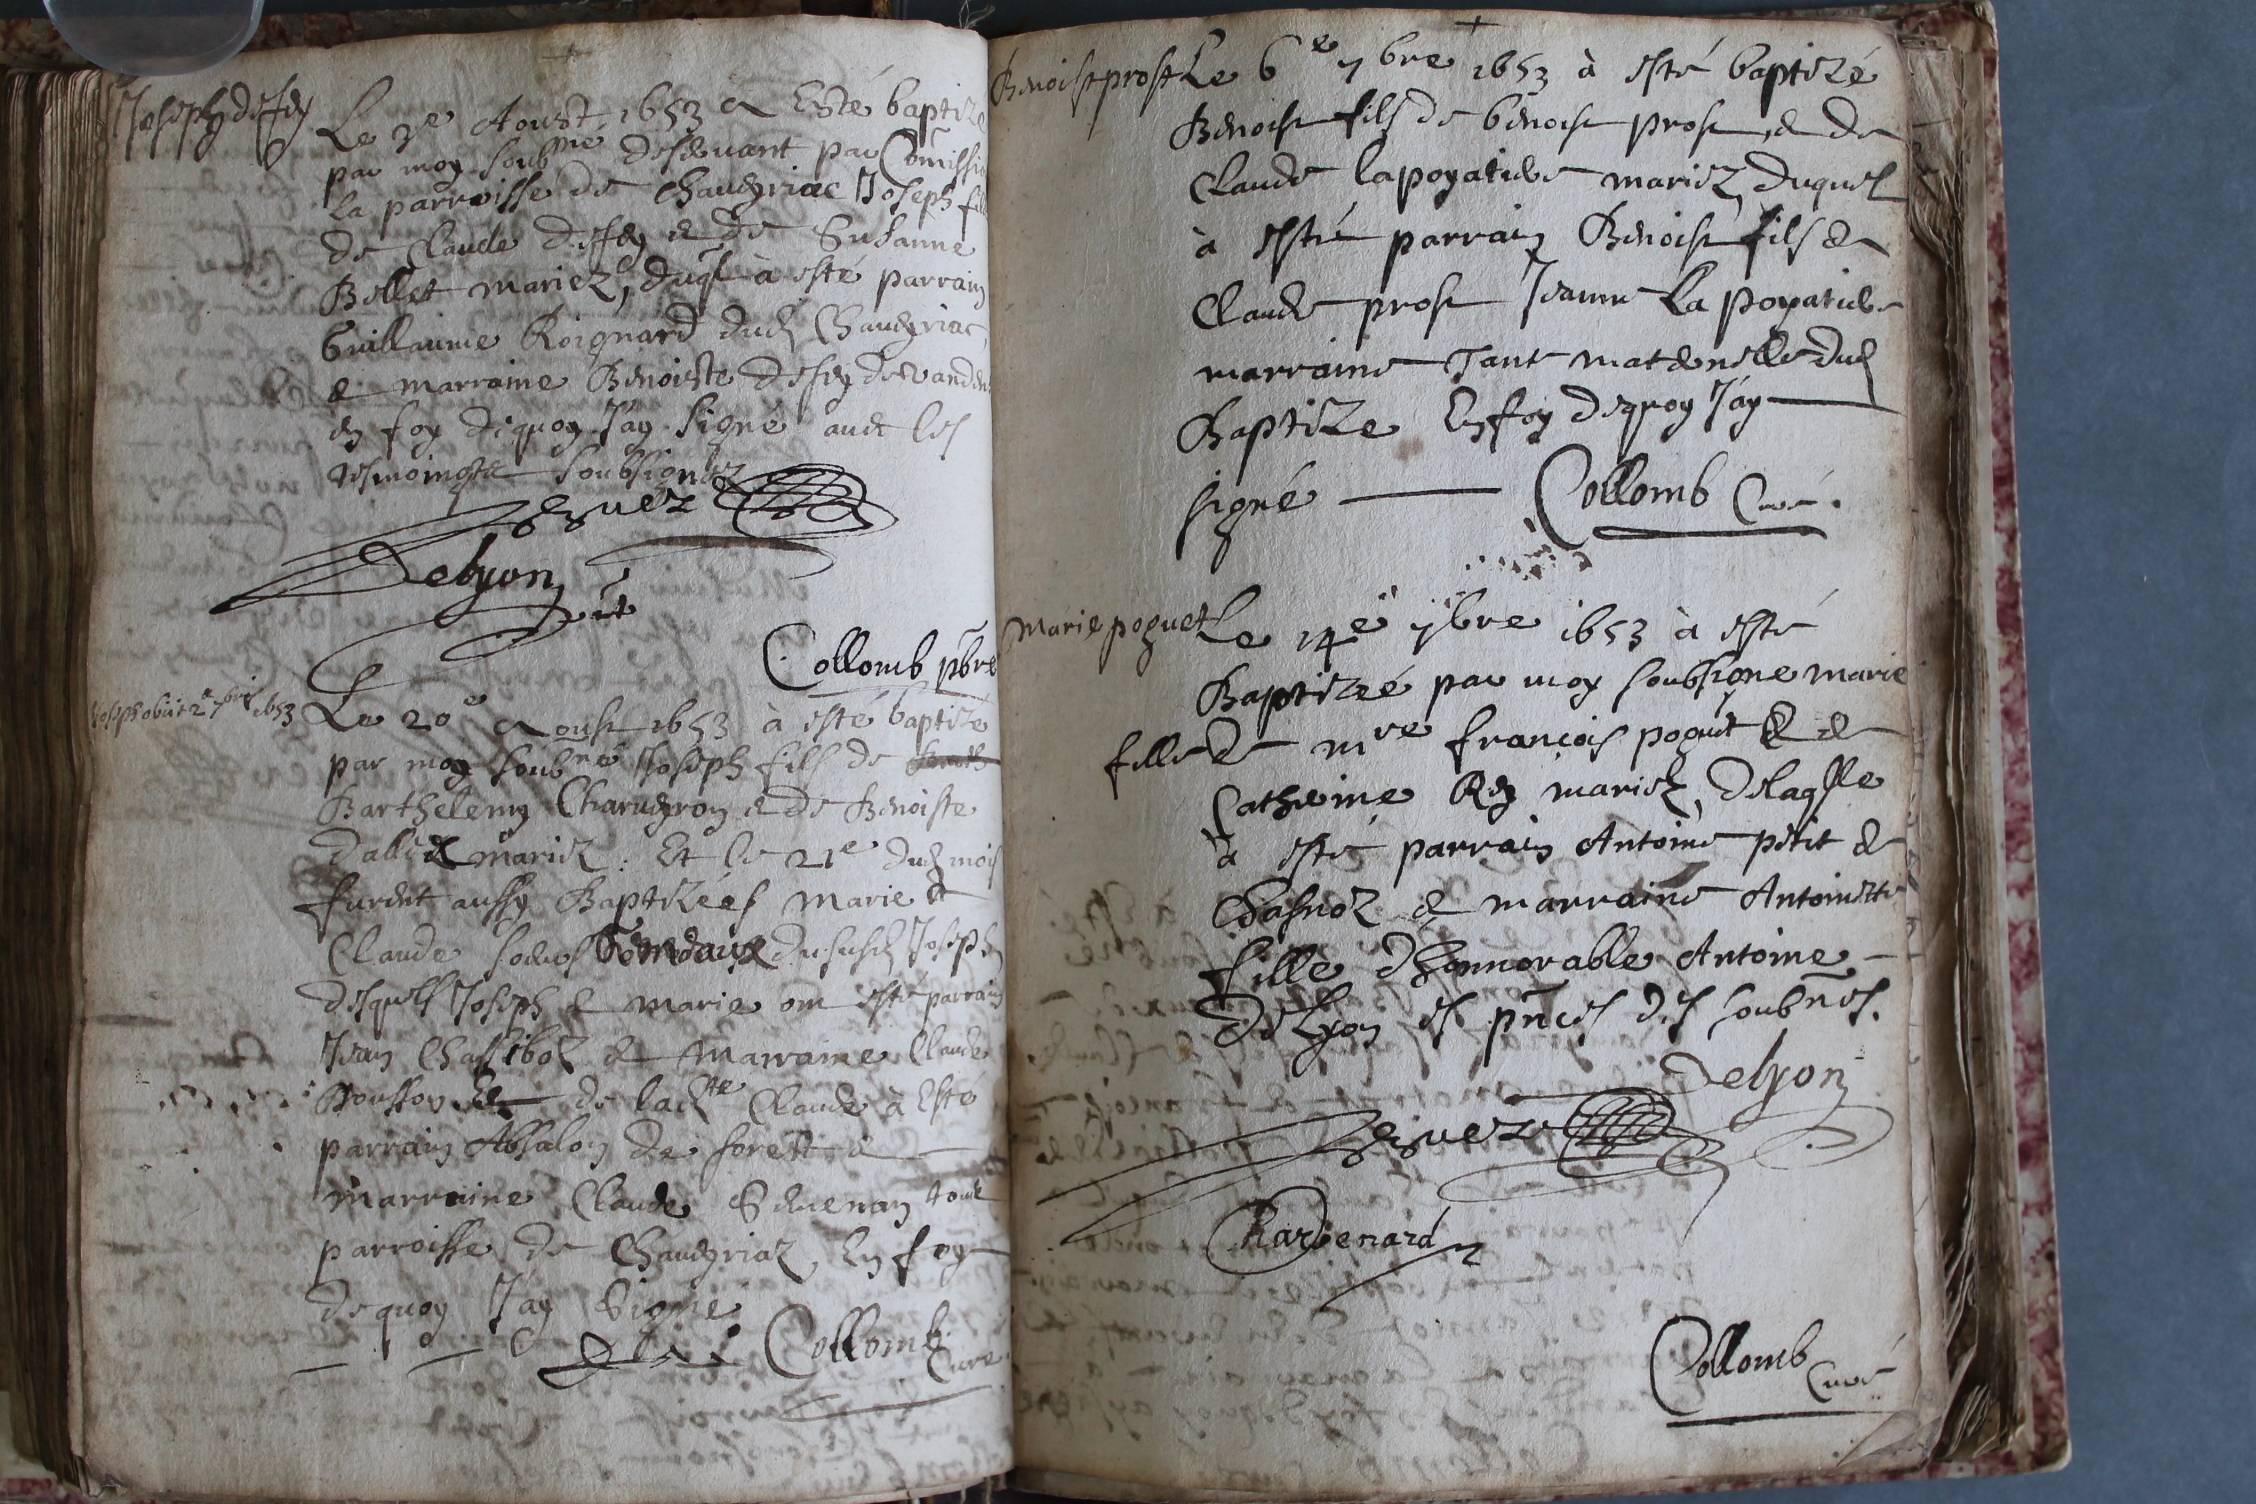 Joseph defey
Le 3e Aoust 1653 a Esté baptizé
par moy soubné deseruant par Comissio
la parroisse de chaueyriac Joseph fils
de Claude defey & de Susanne
Bellet mariez, duql à esté parrain
Guillaume Roignard dud Chaueyriac
& marraine Benoiste defey de vandeins
en foy dequoy Jay signé auec les
tesmoings soubsignez
Deluon
Collomb pbre
Joseph obiit 2e 7bris 1653
Le 20e Aoust 1653 à esté baptizé
par moy soubné Joseph fils de
Barthelemy Charueyron & de Benoiste
mariez. Et le 21e dud mois
furent aussy Baptizées Marie et
Claude soeurs du susd Joseph
desquels Joseph & Marie ont esté parrain
Jean Chassiboz & Marraine Claude
Bousson & de lad Claude à Esté
parrain Absalon de forest &
marraine Claude toute
parroisse de Chaueyriaz, En foy
dequoy Jay Signé
Collomb
Curé
Benoist prost
Le 6e 7bre 1653 à esté baptizé
Benoist fils de benoist prost & de
Claude lapoyatiere mariez, duquel
à esté parrain Benoist fils de
Claude prost Jeanne La poyatiere
marraine Tante maternelle dud
Baptize En foy dequoy Jay
signé Collomb Curé.
Marie poguet
Le 14e 7bre 1653 à esté
Baptizeé par moy soubsigne marie
fille de mre françois poguet & de
Catherine Rey mariez, delaqlle
à esté parrain Antoine petit de
Chasnoz & marraine Antoinette
fille dhonnorable Antoine
Delyon es pnces des soubnés.
Delyon
Charbenard
Collomb
Curé